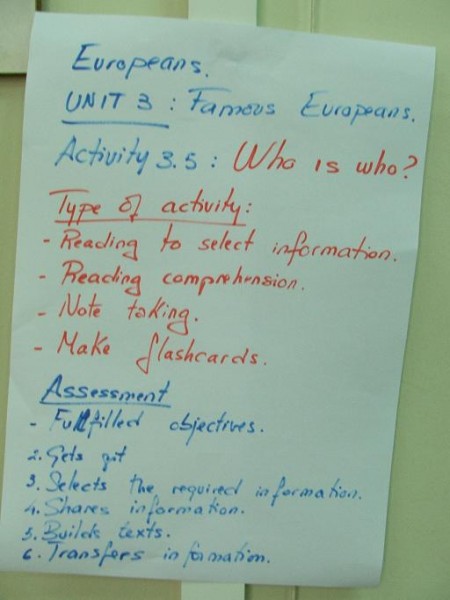 Europeans.
UNIT 3 : Famous Europeans.
Activity 3.5 : Who is who?
Type of activity:
- Reading to select information.
- Reading comprehension.
- Note taking.
- Make flashcards.
Assessment
- Fulfilled objectives.
2. Gets
3. Selects the required information.
4. Shares information.
5. Builds texts.
6. Transfers information.